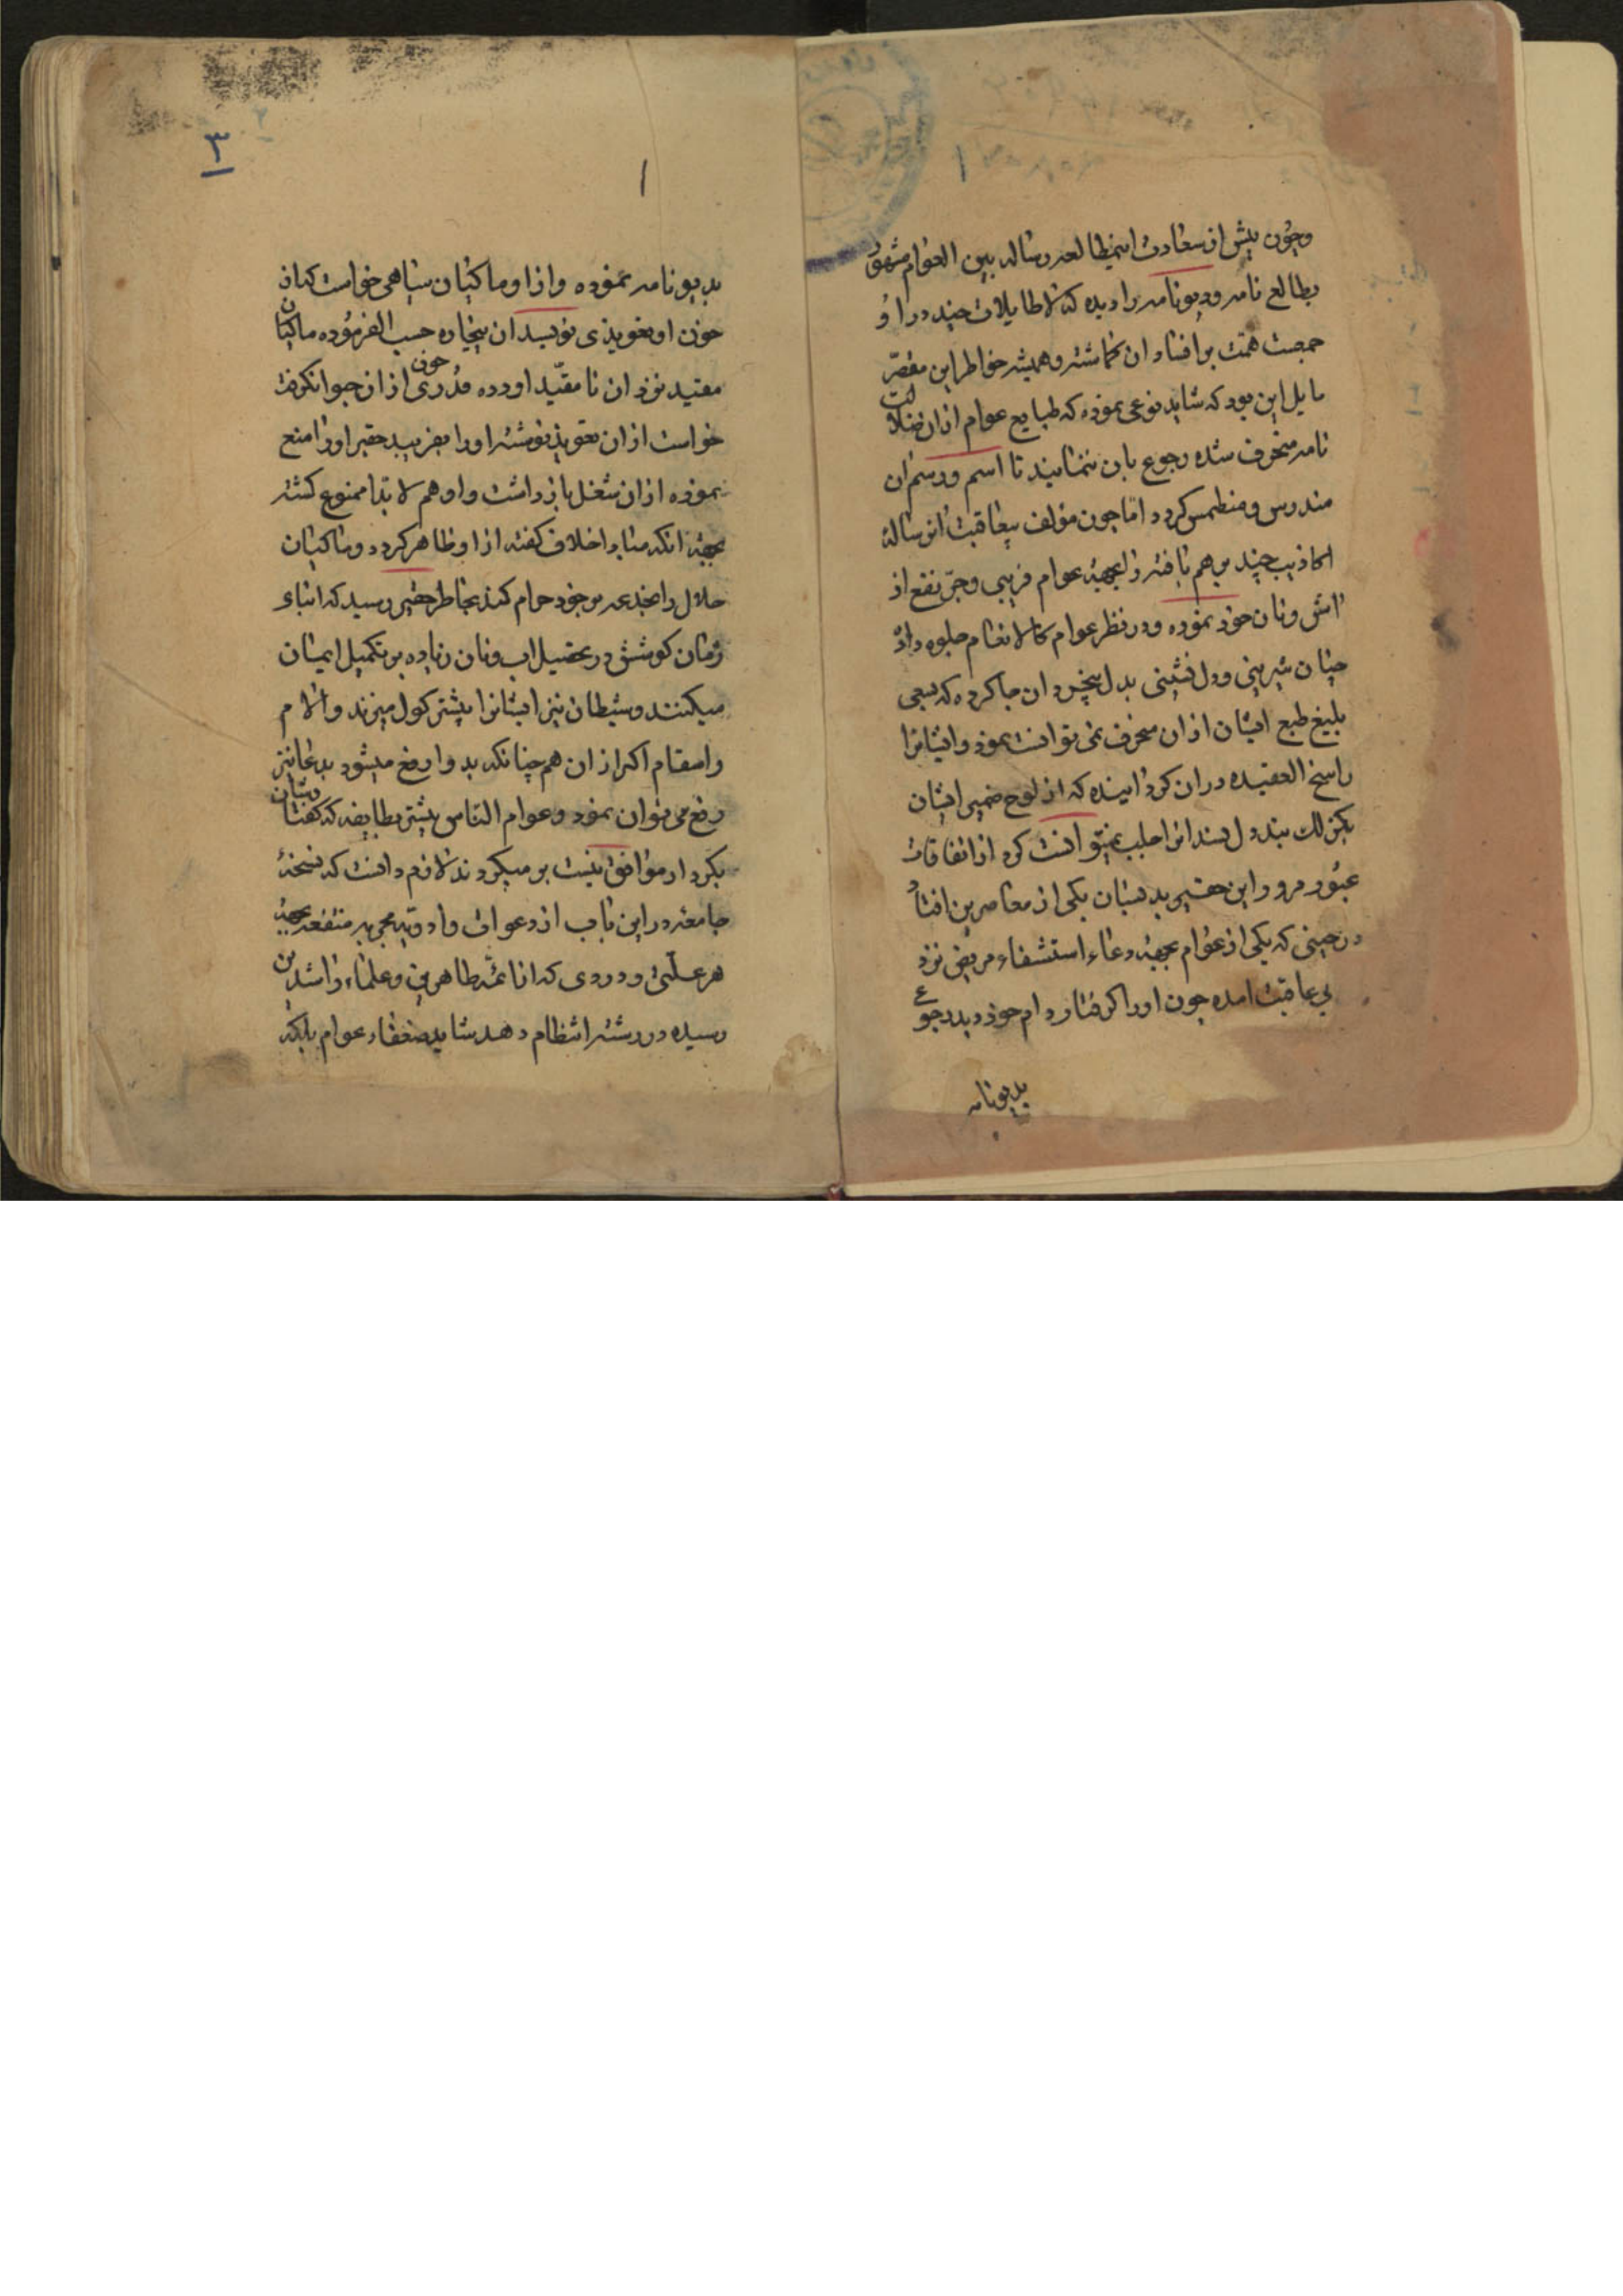 وچون پیش از سعادت استطالعه رساله بین العوام مشهور
بطالع نامه ودیونامه را دیده که لاطایلات چند در او
جمعست همّت بر افناء ان کماشته وهمیشه خواطر این مقصّر
مایل این بود که شاید نوعی نموده که طبایع عوام از ان ضلالت
نامه منحرف شده رجوع بان ننمایند تا اسم ورسم ان
مندرس ومنطمس کردد امّا چون مؤلف بیعاقبت ان رساله
اکاذیب چند برهم بافته را بجهة عوام فریبی وجرّ نفع از
اش ونان خود نموده ودر نظر عوام کالانعام جلوه داده
چنان شیرینی ودل نشینی بدل بیخردان جا کرده که بسعی
بلیغ طبع ایشان از ان منحرف نمی توانست نمود وایشانرا
راسخ العقیده در ان کردانیده که از لوح ضمیر ایشان
بکزلک پند ول پسند انرا حلب نمیتوانست کرد از اتفاقات
عبور ومرور این حقیر بدبستان یکی از معاصرین افتاد
در حینی که یکی از عوام بجهة دعاء استشفاء مریض نزد
بی عاقبت امده چون اورا کرفتار دام خود دید رجوع
بدیونامه
۳
۱
بدیونامه نموده وازاو ماکیان سیاهی خواست که از
خون او تعویذی نویسد ان بیچاره حسب الفرموده ماکیان
مقید نزد ان نا مقیّد اورده قدری خون از ان حیوان کرفته
خواست از ان تعویذ نوشته اورا بفریبد حقیر اورا منع
نموده از ان شغل باز داشت واوهم لابدا ممنوع کشته
بجهة انکه مبادا خلاف کفته از او ظاهر کردد وماکیان
حلال را بخدعه بر خود حرام کند بخاطر حقیر رسید که ابناء
زمان کوشش در تحصیل اب ونان زیاده بر تکمیل ایمان
میکنند وشیطان نیز ایشانرا بیشتر کول میزند والام
واسقام اکر از ان هم چنانکه بدوا رفع میشود بدعا نیز
رفع می توان نمود وعوام الناس بیشتر بطایفه که کفتارشان
بکردار موافق نیست بر میکردند لازم دانست که نسخهٔ
جامعه در این باب از دعوات وادویه مجربه منتفعه بجهة
هر علّتی ودردی که از ائمّه طاهرین وعلماء راشدین
رسیده در رشته انتظام دهد شاید ضعفاء عوام بلکه